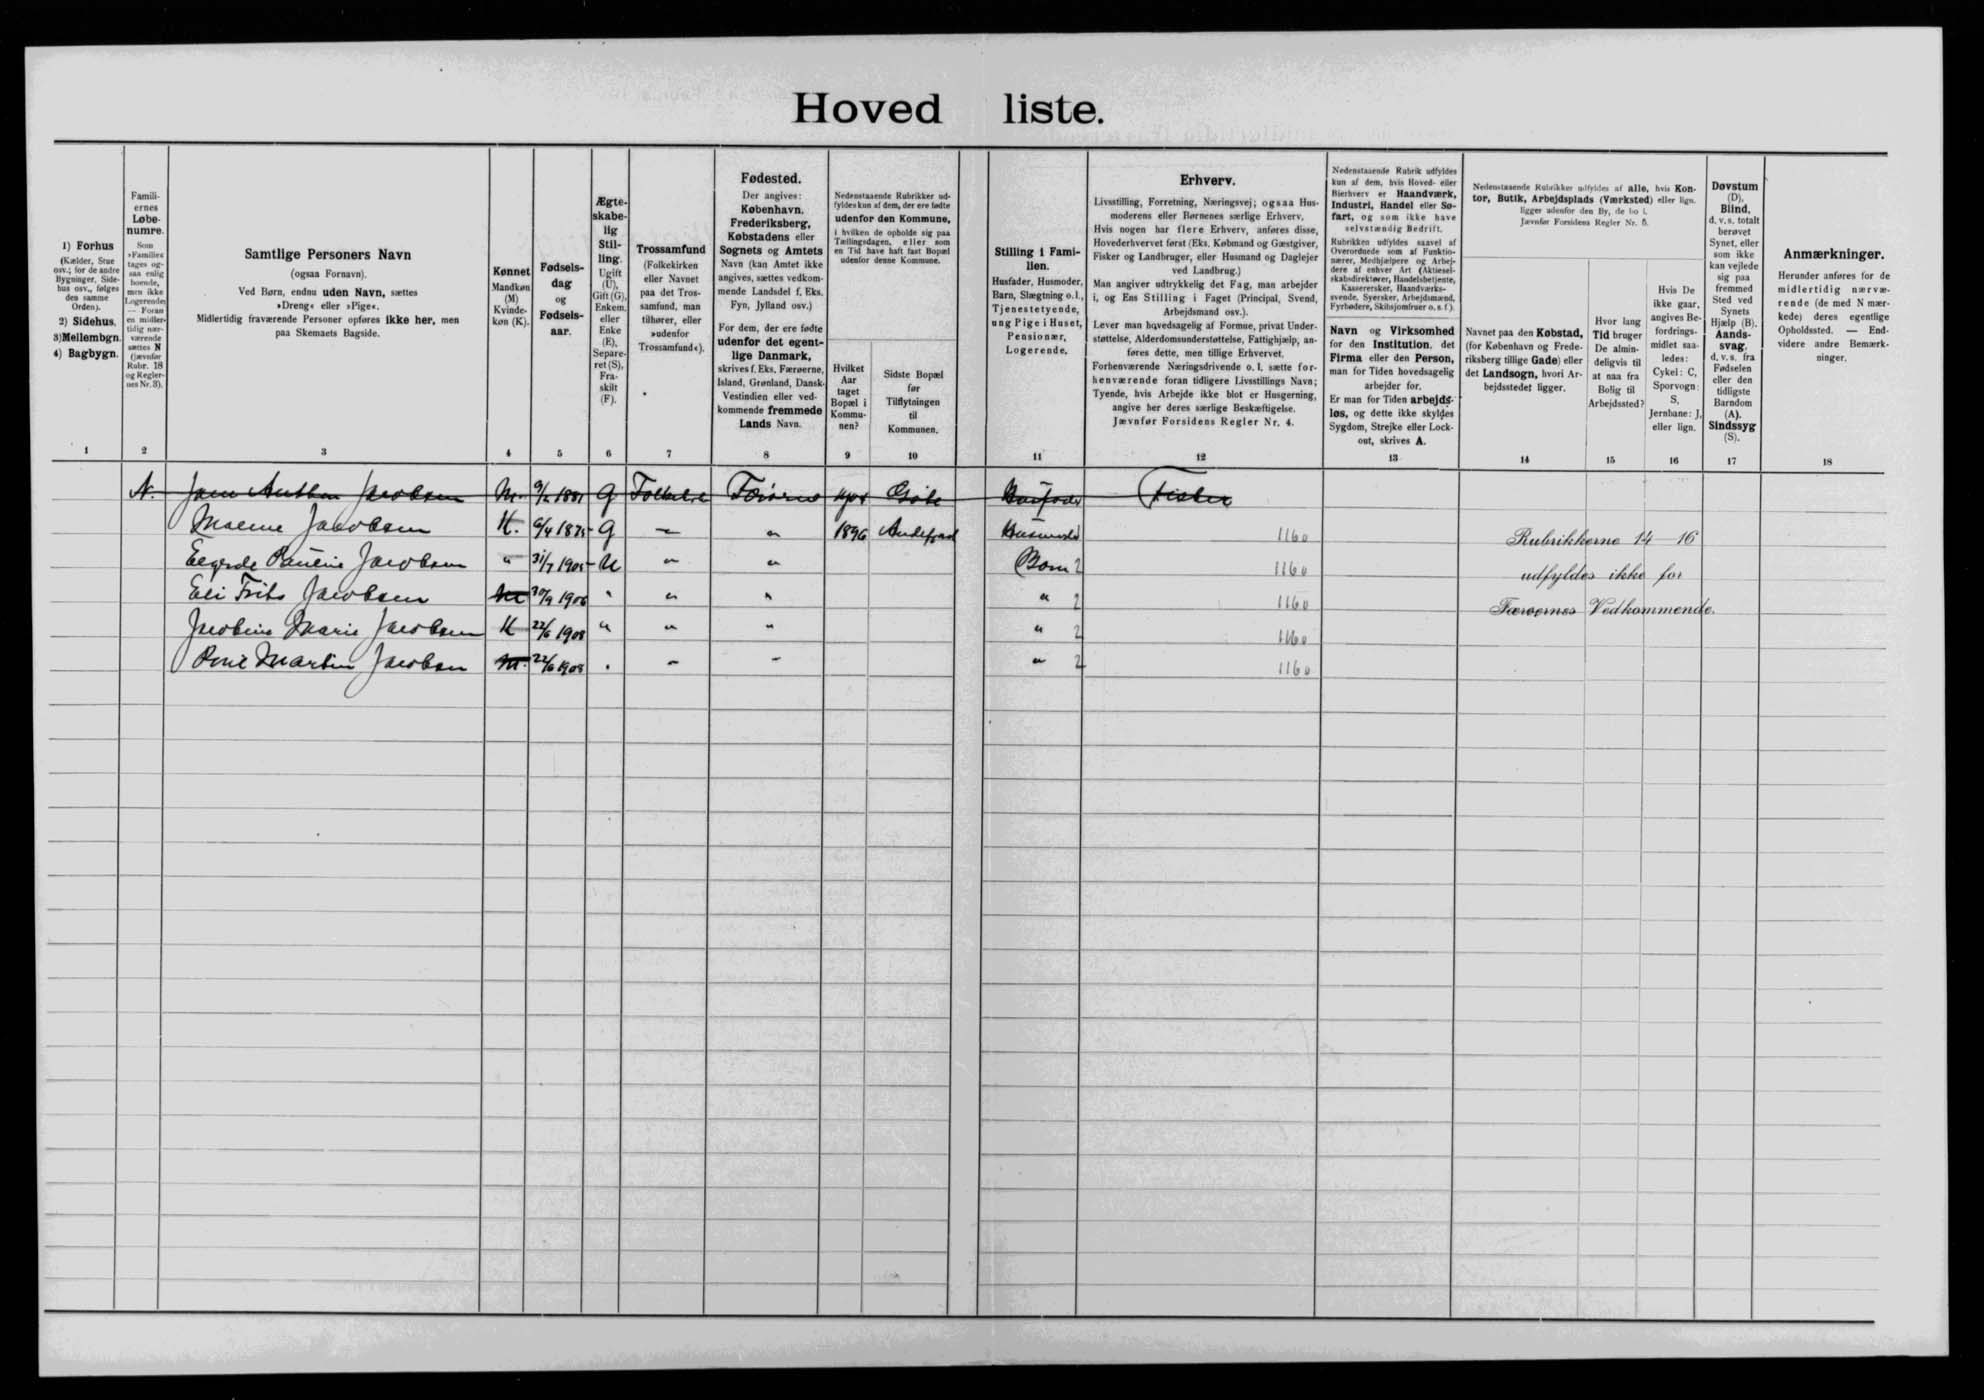 Hoved liste.
1) Forhus
(Kælder, Stue
osv.; for de andre
Bygninger, Side-
hus osv., følges
den samme
Orden).
2) Sidehus.
3) Mellembgn.
4) Bagbygn.
1
Famili-
ernes
Løbe-
numre.
Som
»Familie«
tages og-
saa enlig
boende,
men ikke
Logerende;
— Foran
en midler-
tidig nær-
værende
sættes N
(jævnfør
Rubr. 18
og Regler-
nes Nr. 3).
2
Samtlige Personers Navn
(ogsaa Fornavn).
Ved Børn, endnu uden Navn, sættes
»Dreng« eller »Pige«.
Midlertidig fraværende Personer opføres ikke her, men
paa Skemaets Bagside.
3
Kønnet
Mandkøn
(M)
Kvinde-
køn (K).
4
Fødsels-
dag
og
Fødsels-
aar.
5
Ægte-
skabe-
lig
Stil-
ling.
Ugift
(U),
Gift (G),
Enkem.
eller
Enke
(E),
Separe-
ret (S),
Fra-
skilt
(F).
6
Trossamfund
(Folkekirken
eller Navnet
paa det Tros-
samfund, man
tilhører, eller
»udenfor
Trossamfund«).
7
Fødested.
Der angives:
København,
Frederiksberg,
Købstadens eller
Sognets og Amtets
Navn (kan Amtet ikke
angives, sættes vedkom-
mende Landsdel f. Eks.
Fyn, Jylland osv.)
For dem, der ere fødte
udenfor det egent-
lige Danmark,
skrives f. Eks. Færøerne,
Island, Grønland, Dansk-
Vestindien eller ved-
kommende fremmede
Lands Navn.
8
Nedenstaaende Rubrikker ud-
fyldes kun af dem, der ere fødte
udenfor den Kommune,
i hvilken de opholde sig paa
Tællingsdagen, eller som
en Tid have haft fast Bopæl
udenfor denne Kommune.
Hvilket
Aar
taget
Bopæl i
Kommu-
nen?
9
Sidste Bopæl
før
Tilflytningen
til
Kommunen.
10
Stilling i Fami-
lien.
Husfader, Husmoder,
Barn, Slægtning o. l.,
Tjenestetyende,
ung Pige i Huset,
Pensionær,
Logerende.
11
Erhverv.
Livsstilling, Forretning, Næringsvej; ogsaa Hus-
moderens eller Børnenes særlige Erhverv.
Hvis nogen har flere Erhverv, anføres disse,
Hovederhvervet først (Eks. Købmand og Gæstgiver,
Fisker og Landbruger, eller Husmand og Daglejer
ved Landbrug.)
Man angiver udtrykkelig det Fag, man arbejder
i, og Ens Stilling i Faget (Principal, Svend,
Arbejdsmand osv.).
Lever man hovedsagelig af Formue, privat Under-
støttelse, Alderdomsunderstøttelse, Fattighjælp, an-
føres dette, men tillige Erhvervet.
Forhenværende Næringsdrivende o. l. sætte for-
henværende foran tidligere Livsstillings Navn;
Tyende, hvis Arbejde ikke blot er Husgerning,
angive her deres særlige Beskæftigelse.
Jævnfør Forsidens Regler Nr. 4.
12
Nedenstaaende Rubrik udfyldes
kun af dem, hvis Hoved- eller
Bierhverv er Haandværk,
Industri, Handel eller Sø-
fart, og som ikke have
selvstændig Bedrift.
Rubrikken udfyldes saavel af
Overordnede som af Funktio-
nærer, Medhjælpere og Arbej-
dere af enhver Art (Aktiesel-
skabsdirektører, Handelsbetjente,
Kasserersker, Haandværks-
svende, Syersker, Arbejdsmænd,
Fyrbødere, Skibsjomfruer o. s. f.).
Navn og Virksomhed
for den Institution, det
Firma eller den Person,
man for Tiden hovedsagelig
arbejder for.
Er man for Tiden arbejds-
løs, og dette ikke skyldes
Sygdom, Strejke eller Lock-
out, skrives A.
13
Nedenstaaende Rubrikker udfyldes af alle, hvis Kon-
tor, Butik, Arbejdsplads (Værksted) eller lign.
ligger udenfor den By, de bo i.
Jævnfør Forsidens Regler Nr. 5.
Navnet paa den Købstad,
(for København og Frede-
riksberg tillige Gade) eller
det Landsogn, hvori Ar-
bejdsstedet ligger.
14
Hvor lang
Tid bruger
De almin-
deligvis til
at naa fra
Bolig til
Arbejdssted?
15
Hvis De
ikke gaar,
angives Be-
fordrings-
midlet saa-
ledes:
Cykel: C,
Sporvogn:
S,
Jernbane: J,
eller lign.
16
Døvstum
(D).
Blind,
d. v. s. totalt
berøvet
Synet, eller
som ikke
kan vejlede
sig paa
fremmed
Sted ved
Synets
Hjælp (B).
Aands-
svag,
d. v. s. fra
Fødselen
eller den
tidligste
Barndom
(A).
Sindssyg
(S).
17
Anmærkninger.
Herunder anføres for de
midlertidig nærvæ-
rende (de med N mær-
kede) deres egentlige
Opholdssted. — End-
videre andre Bemærk-
ninger.
18
N. Jacobsen M. 1881 G Færøerne Göte Husfader Fisker
Jacobsen K. 6/4 1875 G — " 1896 Andefjord Husmoder 1160
Jacobsen " 31/7 1905 U " " Barn 2 1160
Eli Frits Jacobsen M 30/9 1906 " " " " 2 1160
Jacobine Marie Jacobsen K 22/6 1908 " " " " 2 1160
Martin Jacobsen M. 22/6 1908 " " " " 2 1160
Rubrikkerne 14 — 16
udfyldes ikke for
Færøernes Vedkommende.